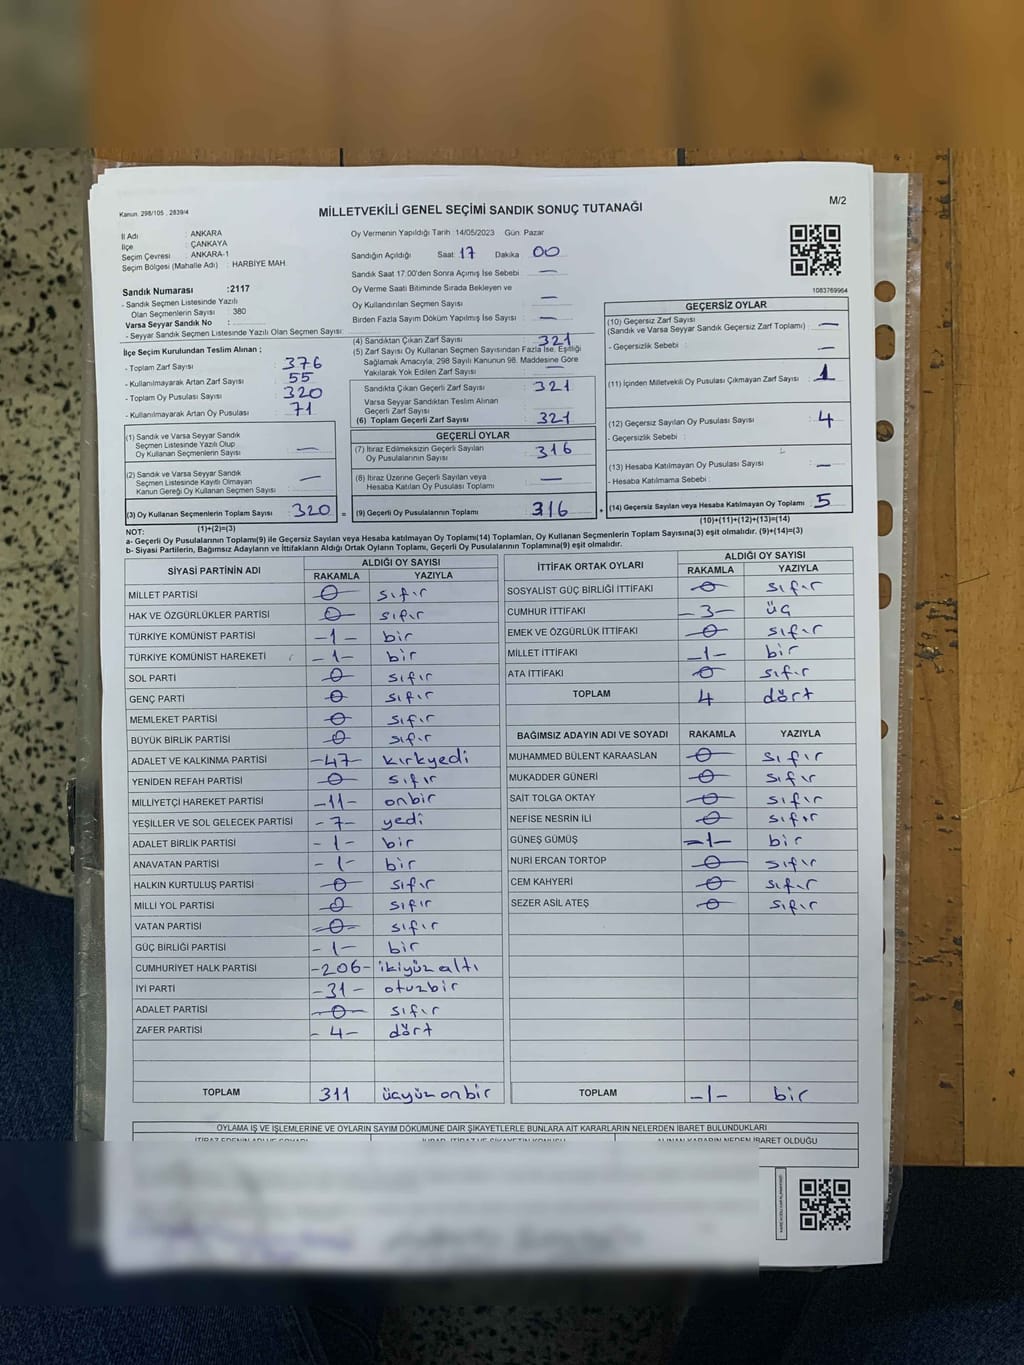 Kanun. 298/105 , 2839/4
MİLLETVEKİLİ GENEL SEÇİMİ SANDIK SONUÇ TUTANAĞI
M/2
İl Adı : ANKARA
İlçe : ÇANKAYA
Seçim Çevresi : ANKARA-1
Seçim Bölgesi (Mahalle Adı) : HARBİYE MAH.
Oy Vermenin Yapıldığı Tarih :14/05/2023 Gün: Pazar
Sandığın Açıldığı Saat 17 Dakika 00
Sandık Saat 17.00'den Sonra Açımış İse Sebebi —
Oy Verme Saati Bitiminde Sırada Bekleyen ve
Oy Kullandırılan Seçmen Sayısı —
Birden Fazla Sayım Döküm Yapılmış İse Sayısı : —
1083769964
Sandık Numarası :2117
- Sandık Seçmen Listesinde Yazılı
Olan Seçmenlerin Sayısı : 380
Varsa Seyyar Sandık No :
- Seyyar Sandık Seçmen Listesinde Yazılı Olan Seçmen Sayısı:
İlçe Seçim Kurulundan Teslim Alınan ;
- Toplam Zarf Sayısı : 376
- Kullanılmayarak Artan Zarf Sayısı : 55
- Toplam Oy Pusulası Sayısı : 320
- Kullanılmayarak Artan Oy Pusulası : 71
(1) Sandık ve Varsa Seyyar Sandık
Seçmen Listesinde Yazılı Olup
Oy Kullanan Seçmenlerin Sayısı : —
(2) Sandık ve Varsa Seyyar Sandık
Seçmen Listesinde Kayıtlı Olmayan
Kanun Gereği Oy Kullanan Seçmen Sayısı : —
(3) Oy Kullanan Seçmenlerin Toplam Sayısı : 320 =
(1)+(2)=(3)
(4) Sandıktan Çıkan Zarf Sayısı : 321
(5) Zarf Sayısı Oy Kullanan Seçmen Sayısından Fazla İse, Eşitliği
Sağlamak Amacıyla, 298 Sayılı Kanunun 98. Maddesine Göre
Yakılarak Yok Edilen Zarf Sayısı : —
Sandıkta Çıkan Geçerli Zarf Sayısı : 321
Varsa Seyyar Sandıktan Teslim Alınan
Geçerli Zarf Sayısı :
(6) Toplam Geçerli Zarf Sayısı : 321
GEÇERLİ OYLAR
(7) İtiraz Edilmeksizin Geçerli Sayılan
Oy Pusulalarının Sayısı : 316
(8) İtiraz Üzerine Geçerli Sayılan veya
Hesaba Katılan Oy Pusulası Toplamı : —
(9) Geçerli Oy Pusulalarının Toplamı : 316 +
GEÇERSİZ OYLAR
(10) Geçersiz Zarf Sayısı
(Sandık ve Varsa Seyyar Sandık Geçersiz Zarf Toplamı) : —
- Geçersizlik Sebebi : —
(11) İçinden Milletvekili Oy Pusulası Çıkmayan Zarf Sayısı : 1
(12) Geçersiz Sayılan Oy Pusulası Sayısı : 4
- Geçersizlik Sebebi :
(13) Hesaba Katılmayan Oy Pusulası Sayısı : —
- Hesaba Katılmama Sebebi :
(14) Geçersiz Sayılan veya Hesaba Katılmayan Oy Toplamı : 5
(10)+(11)+(12)+(13)=(14)
NOT:
a- Geçerli Oy Pusulalarının Toplamı(9) ile Geçersiz Sayılan veya Hesaba Katılmayan Oy Toplamı(14) Toplamları, Oy Kullanan Seçmenlerin Toplam Sayısına(3) eşit olmalıdır. (9)+(14)=(3)
b- Siyasi Partilerin, Bağımsız Adayların ve İttifakların Aldığı Ortak Oyların Toplamı, Geçerli Oy Pusulalarının Toplamına(9) eşit olmalıdır.
SİYASİ PARTİNİN ADI ALDIĞI OY SAYISI
RAKAMLA YAZIYLA
MİLLET PARTİSİ 0 sıfır
HAK VE ÖZGÜRLÜKLER PARTİSİ 0 sıfır
TÜRKİYE KOMÜNİST PARTİSİ -1- bir
TÜRKİYE KOMÜNİST HAREKETİ -1- bir
SOL PARTİ 0 sıfır
GENÇ PARTİ 0 sıfır
MEMLEKET PARTİSİ 0 sıfır
BÜYÜK BİRLİK PARTİSİ 0 sıfır
ADALET VE KALKINMA PARTİSİ -47- kırkyedi
YENİDEN REFAH PARTİSİ 0 sıfır
MİLLİYETÇİ HAREKET PARTİSİ -11- onbir
YEŞİLLER VE SOL GELECEK PARTİSİ -7- yedi
ADALET BİRLİK PARTİSİ -1- bir
ANAVATAN PARTİSİ -1- bir
HALKIN KURTULUŞ PARTİSİ 0 sıfır
MİLLİ YOL PARTİSİ 0 sıfır
VATAN PARTİSİ 0 sıfır
GÜÇ BİRLİĞİ PARTİSİ -1- bir
CUMHURİYET HALK PARTİSİ -206- ikiyüz altı
İYİ PARTİ -31- otuzbir
ADALET PARTİSİ 0 sıfır
ZAFER PARTİSİ -4- dört
TOPLAM 311 üçyüz onbir
İTTİFAK ORTAK OYLARI ALDIĞI OY SAYISI
RAKAMLA YAZIYLA
SOSYALİST GÜÇ BİRLİĞİ İTTİFAKI 0 sıfır
CUMHUR İTTİFAKI -3- üç
EMEK VE ÖZGÜRLÜK İTTİFAKI 0 sıfır
MİLLET İTTİFAKI -1- bir
ATA İTTİFAKI 0 sıfır
TOPLAM 4 dört
BAĞIMSIZ ADAYIN ADI VE SOYADI RAKAMLA YAZIYLA
MUHAMMED BÜLENT KARAASLAN 0 sıfır
MUKADDER GÜNERİ 0 sıfır
SAİT TOLGA OKTAY 0 sıfır
NEFİSE NESRİN İLİ 0 sıfır
GÜNEŞ GÜMÜŞ -1- bir
NURİ ERCAN TORTOP 0 sıfır
CEM KAHYERİ 0 sıfır
SEZER ASİL ATEŞ 0 sıfır
TOPLAM -1- bir
OYLAMA İŞ VE İŞLEMLERİNE VE OYLARIN SAYIM DÖKÜMÜNE DAİR ŞİKAYETLERLE BUNLARA AİT KARARLARIN NELERDEN İBARET BULUNDUKLARI
ALINAN KARARIN NEDEN İBARET OLDUĞU